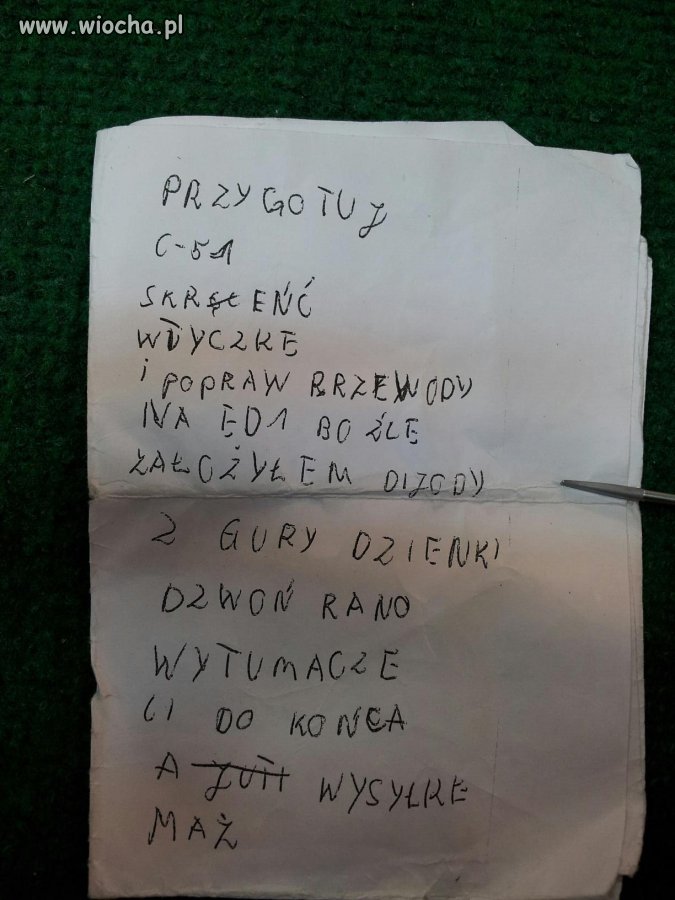 www.wiocha.pl
PRZYGOTUJ
C-51
SKRĘŁEŃĆ
WTYCZKĘ
i POPRAW BRZEWODY
NA ĘD1 BO ŹLĘ
ŻAŁOŻYŁEM DIJODY
Z GURY DZIENKI
DZWOŃ RANO
WYTUMACZE
CI DO KOŃCA
A WYSYŁKE
MAŻ